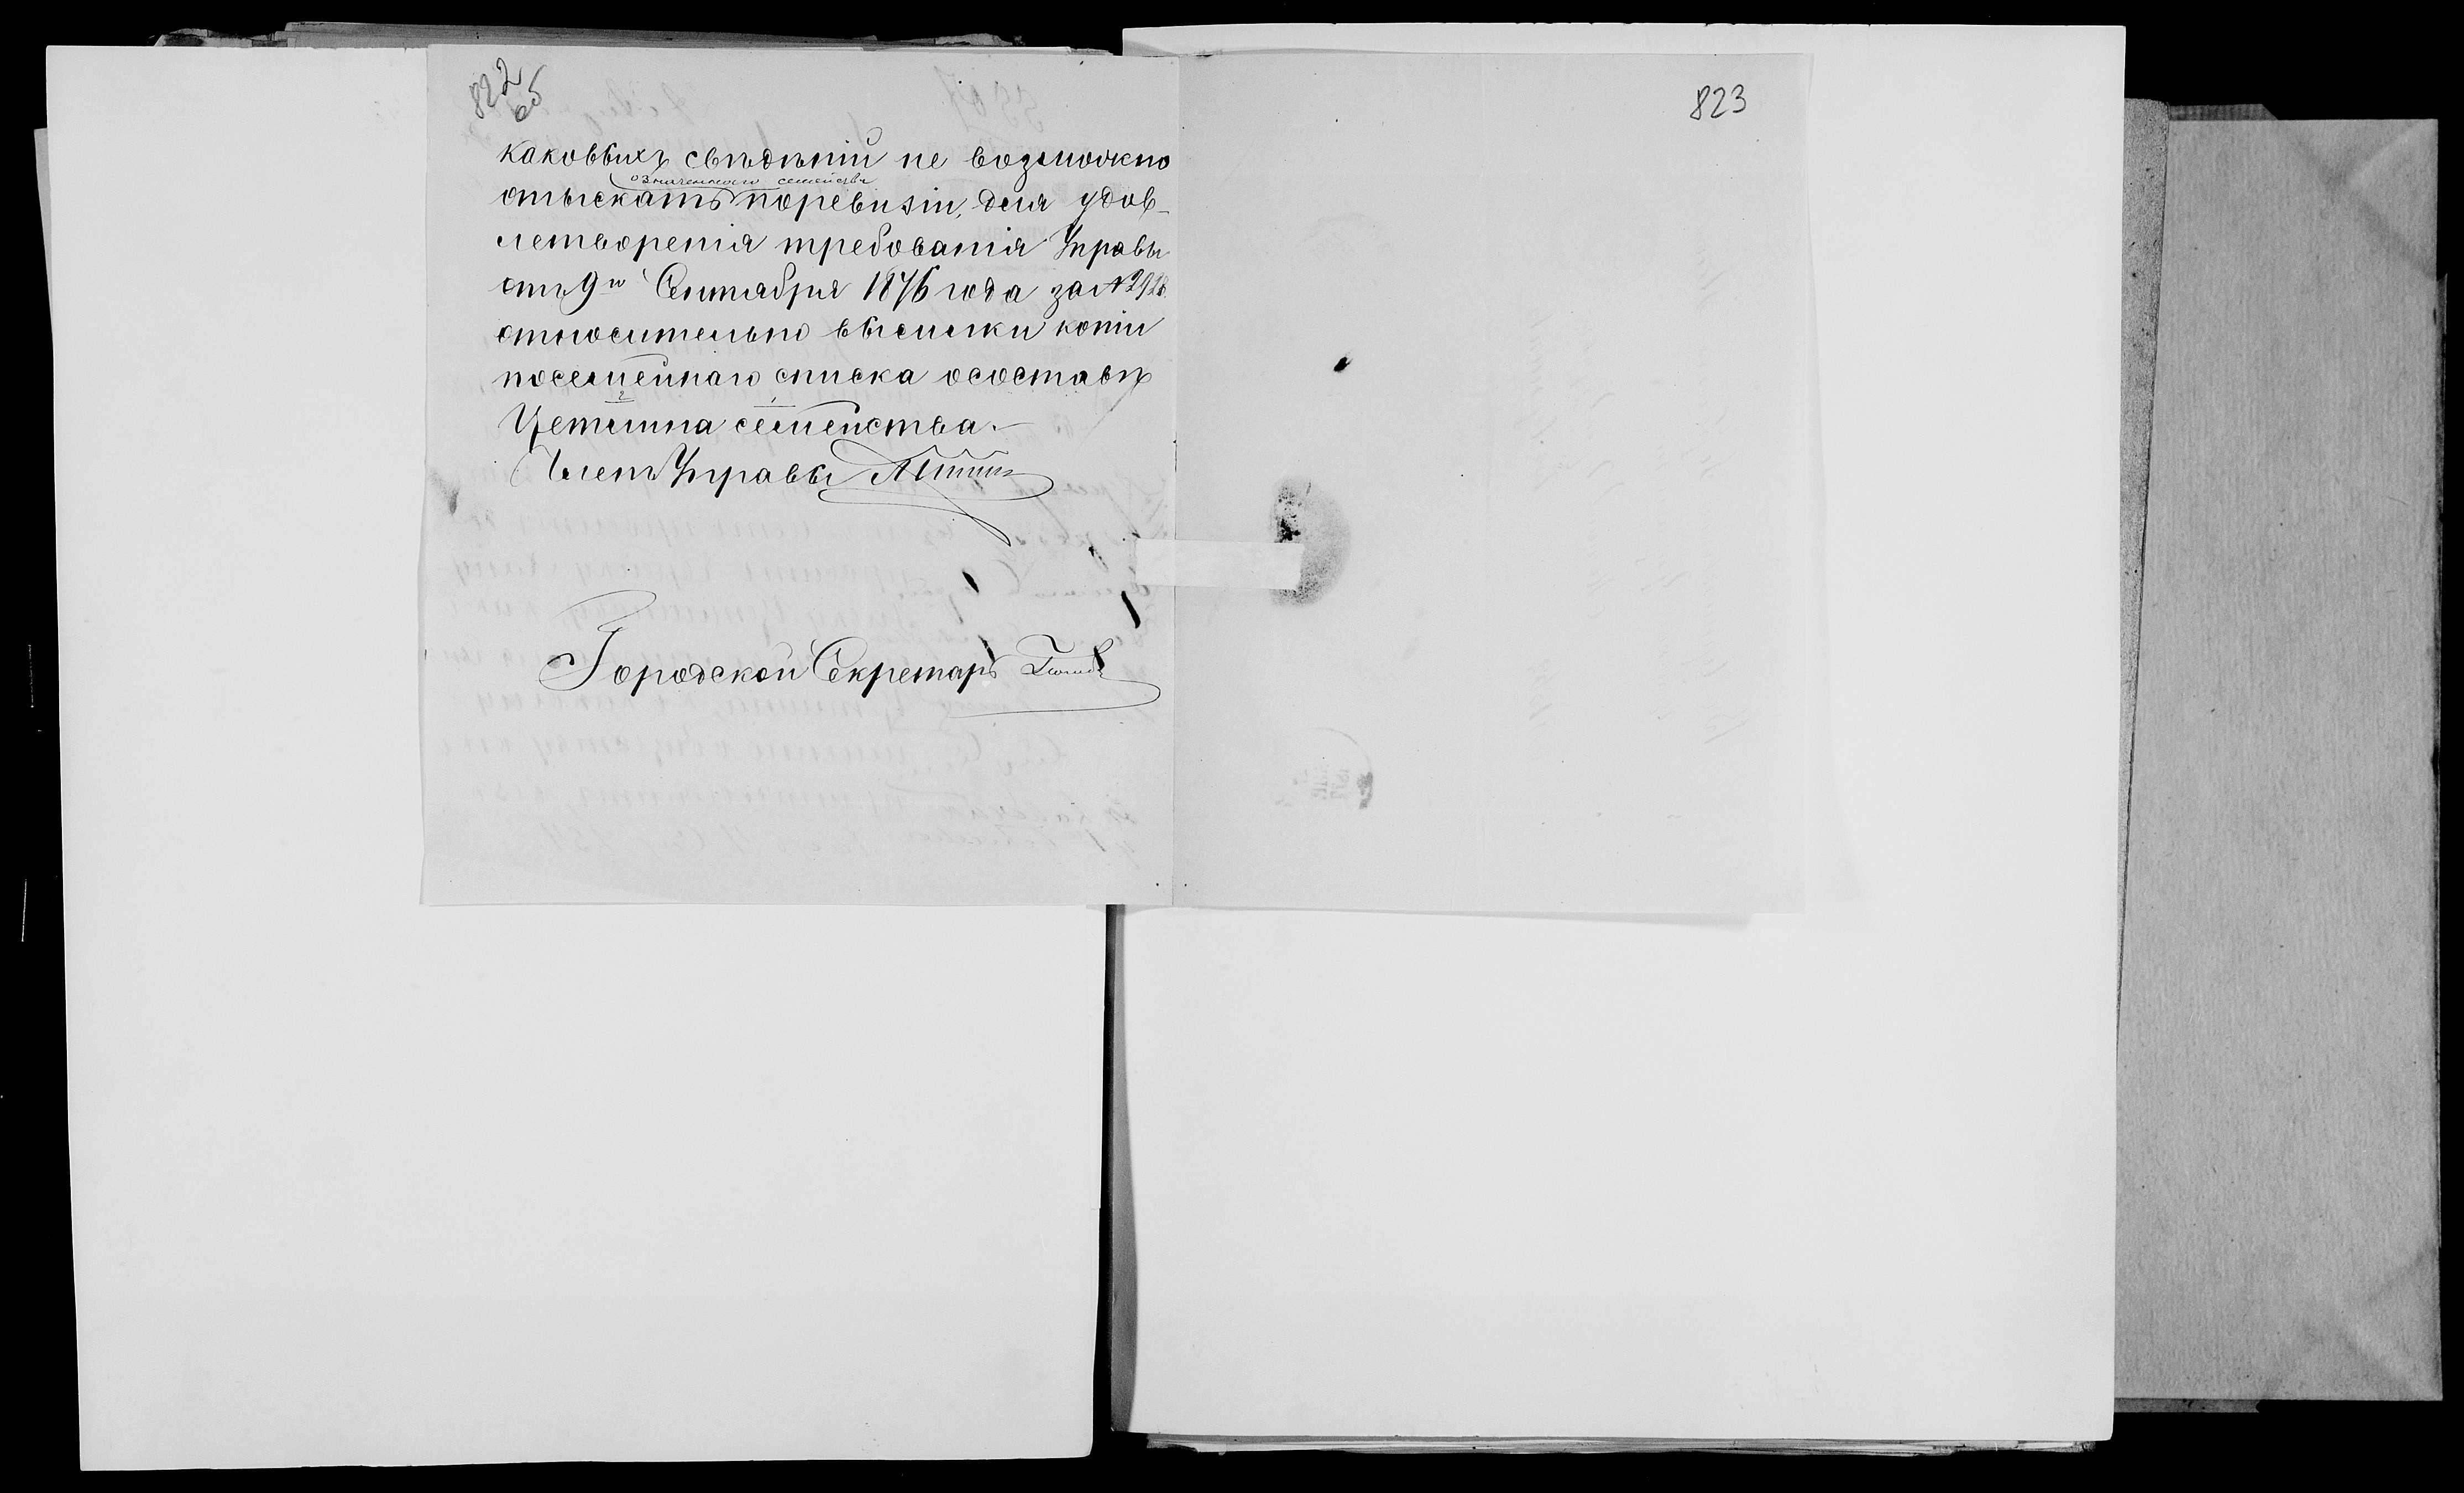 822
об
каковыхъ свѣдѣній не возможно
означеннаго семейства
отыскать поревизіи, для удов-
летворенія требованія Управы
отъ 9го Сентября 1876 года за №
относительно высылки копіи
посемейнаго списка осоставѣ
семейства.
Членъ Управы
Городской Секретарь
823